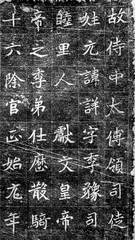 故侍中太傅領司徒
姓元諱詳字季豫司
睦里人獻文皇帝
帝之季弟仕歷散騎
十六除官正始元年